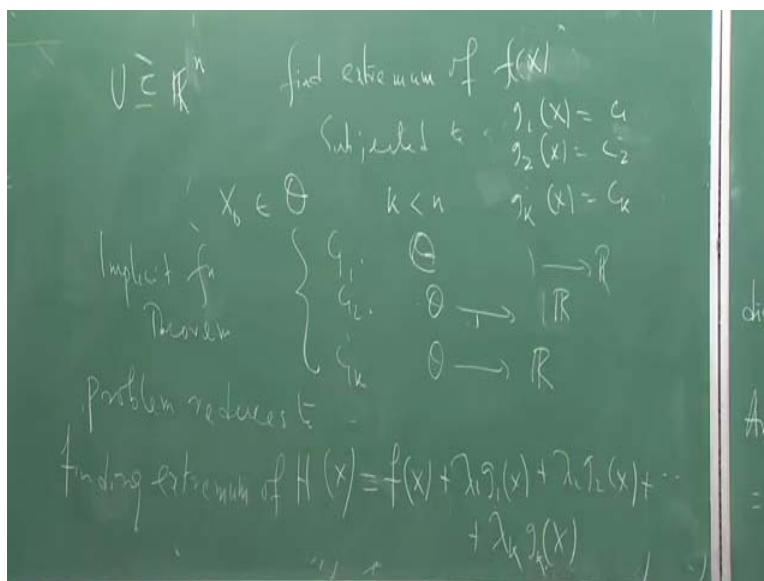 U ⊆ ℝⁿ find extremum of f(x)
Subjected to g₁(x) = c₁
g₂(x) = c₂
X₀ ∈ Θ k < n gₖ(x) = Cₖ
Implicit fn Theorem { G₁: Θ → ℝ
G₂. Θ → ℝ
Gₖ Θ → ℝ
problem reduces to
finding extremum of H(x) ≡ f(x) + λ₁g₁(x) + λ₂g₂(x) + ...
+ λₖ gₖ(x)